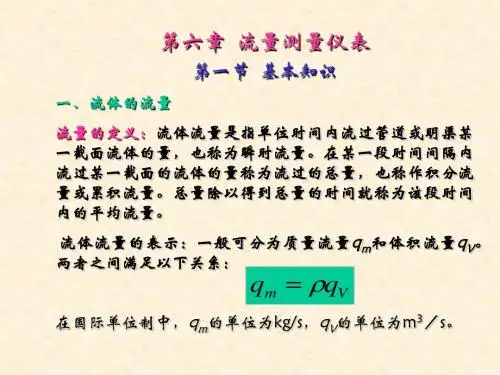 第六章 流量测量仪表
第一节 基本知识
一、流体的流量
流量的定义：流体流量是指单位时间内流过管道或明渠某
一截面流体的量，也称为瞬时流量。在某一段时间间隔内
流过某一截面的流体的量称为流过的总量，也称作积分流
量或累积流量。总量除以得到总量的时间就称为该段时间
内的平均流量。
流体流量的表示：一般可分为质量流量qm和体积流量qV。
两者之间满足以下关系：
qm = ρqV
在国际单位制中，qm的单位为kg/s，qV的单位为m³／s。